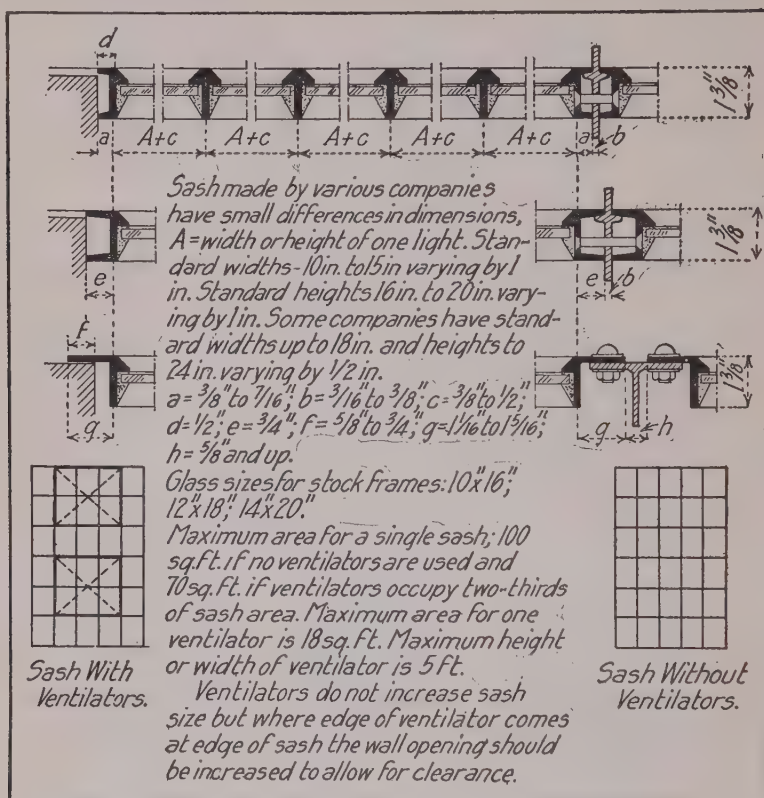 d
1 3/8"
A+c A+c A+c A+c A+c
a a b
Sash made by various companies
have small differences in dimensions,
A=width or height of one light. Stan-
dard widths-10in. to 15in varying by 1
in. Standard heights 16in. to 20in. vary-
ing by 1in. Some companies have stand-
ard widths up to 18in. and heights to
24in. varying by 1/2 in.
a=3/8" to 7/16"; b=3/16" to 3/8"; c=3/8" to 1/2";
d=1/2"; e=3/4"; f=5/8" to 3/4"; g=1 1/16" to 1 5/16";
h=5/8" and up.
Glass sizes for stock frames: 10"x16";
12"x18"; 14"x20".
Maximum area for a single sash; 100
sq.ft. if no ventilators are used and
70 sq.ft. if ventilators occupy two-thirds
of sash area. Maximum area for one
ventilator is 18 sq.ft. Maximum height
or width of ventilator is 5 ft.
Ventilators do not increase sash
size but where edge of ventilator comes
at edge of sash the wall opening should
be increased to allow for clearance.
e
e b
1 3/8"
f
g
g h
1 3/8"
Sash With
Ventilators.
Sash Without
Ventilators.